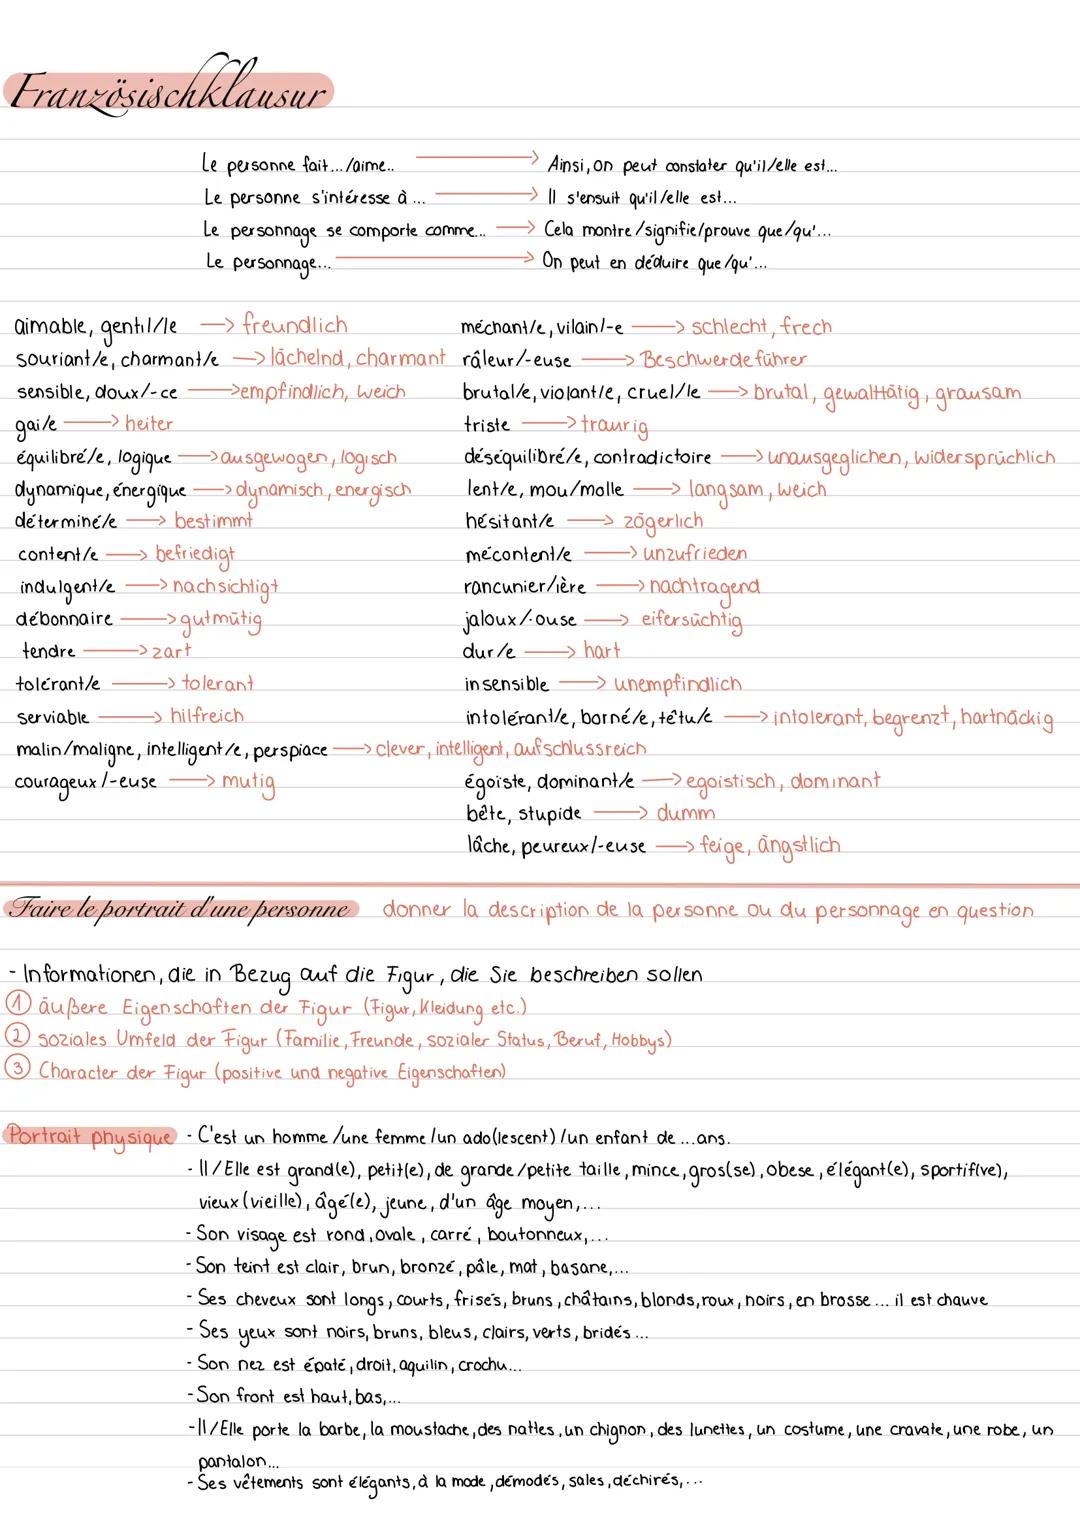 Französischklausur
Le personne fait... /aime.. → Ainsi, on peut constater qu'il/elle est...
Le personne s'intéresse à ... → Il s'ensuit qu'il/elle est...
Le personnage se comporte comme... → Cela montre/signifie/prouve que/qu'...
Le personnage... → On peut en déduire que/qu'...
aimable, gentil/le → freundlich
méchant/e, vilain/-e → schlecht, frech
souriant/e, charmant/e → lächelnd, charmant
râleur/-euse → Beschwerdeführer
sensible, doux/-ce → empfindlich, weich
brutal/e, violant/e, cruel/le → brutal, gewalttätig, grausam
gai/e → heiter
triste → traurig
équilibré/e, logique → ausgewogen, logisch
déséquilibré/e, contradictoire → unausgeglichen, widersprüchlich
dynamique, énergique → dynamisch, energisch
lent/e, mou/molle → langsam, weich
déterminé/e → bestimmt
hésitant/e → zögerlich
content/e → befriedigt
mécontent/e → unzufrieden
indulgent/e → nachsichtigt
rancunier/ière → nachtragend
débonnaire → gutmütig
jaloux/-ouse → eifersüchtig
tendre → zart
dur/e → hart
tolérant/e → tolerant
insensible → unempfindlich
serviable → hilfreich
intolérant/e, borné/e, têtu/e → intolerant, begrenzt, hartnäckig
malin/maligne, intelligent/e, perspiace → clever, intelligent, aufschlussreich
courageux/-euse → mutig
égoïste, dominant/e → egoistisch, dominant
bête, stupide → dumm
lâche, peureux/-euse → feige, ängstlich
Faire le portrait d'une personne donner la description de la personne ou du personnage en question
- Informationen, die in Bezug auf die Figur, die Sie beschreiben sollen
① äußere Eigenschaften der Figur (Figur, Kleidung etc.)
② soziales Umfeld der Figur (Familie, Freunde, sozialer Status, Beruf, Hobbys)
③ Character der Figur (positive und negative Eigenschaften)
Portrait physique - C'est un homme /une femme /un ado(lescent) /un enfant de ...ans.
- Il/Elle est grand(e), petit(e), de grande/petite taille, mince, gros(se), obese, élégant(e), sportif(ve),
vieux (vieille), âgé(e), jeune, d'un âge moyen,...
- Son visage est rond, ovale, carré, boutonneux,...
- Son teint est clair, brun, bronzé, pâle, mat, basane,...
- Ses cheveux sont longs, courts, frisés, bruns, châtains, blonds, roux, noirs, en brosse ... il est chauve
- Ses yeux sont noirs, bruns, bleus, clairs, verts, bridés ...
- Son nez est épaté, droit, aquilin, crochu...
- Son front est haut, bas,...
- Il/Elle porte la barbe, la moustache, des nattes, un chignon, des lunettes, un costume, une cravate, une robe, un
pantalon...
- Ses vêtements sont élégants, à la mode, démodés, sales, déchirés,...